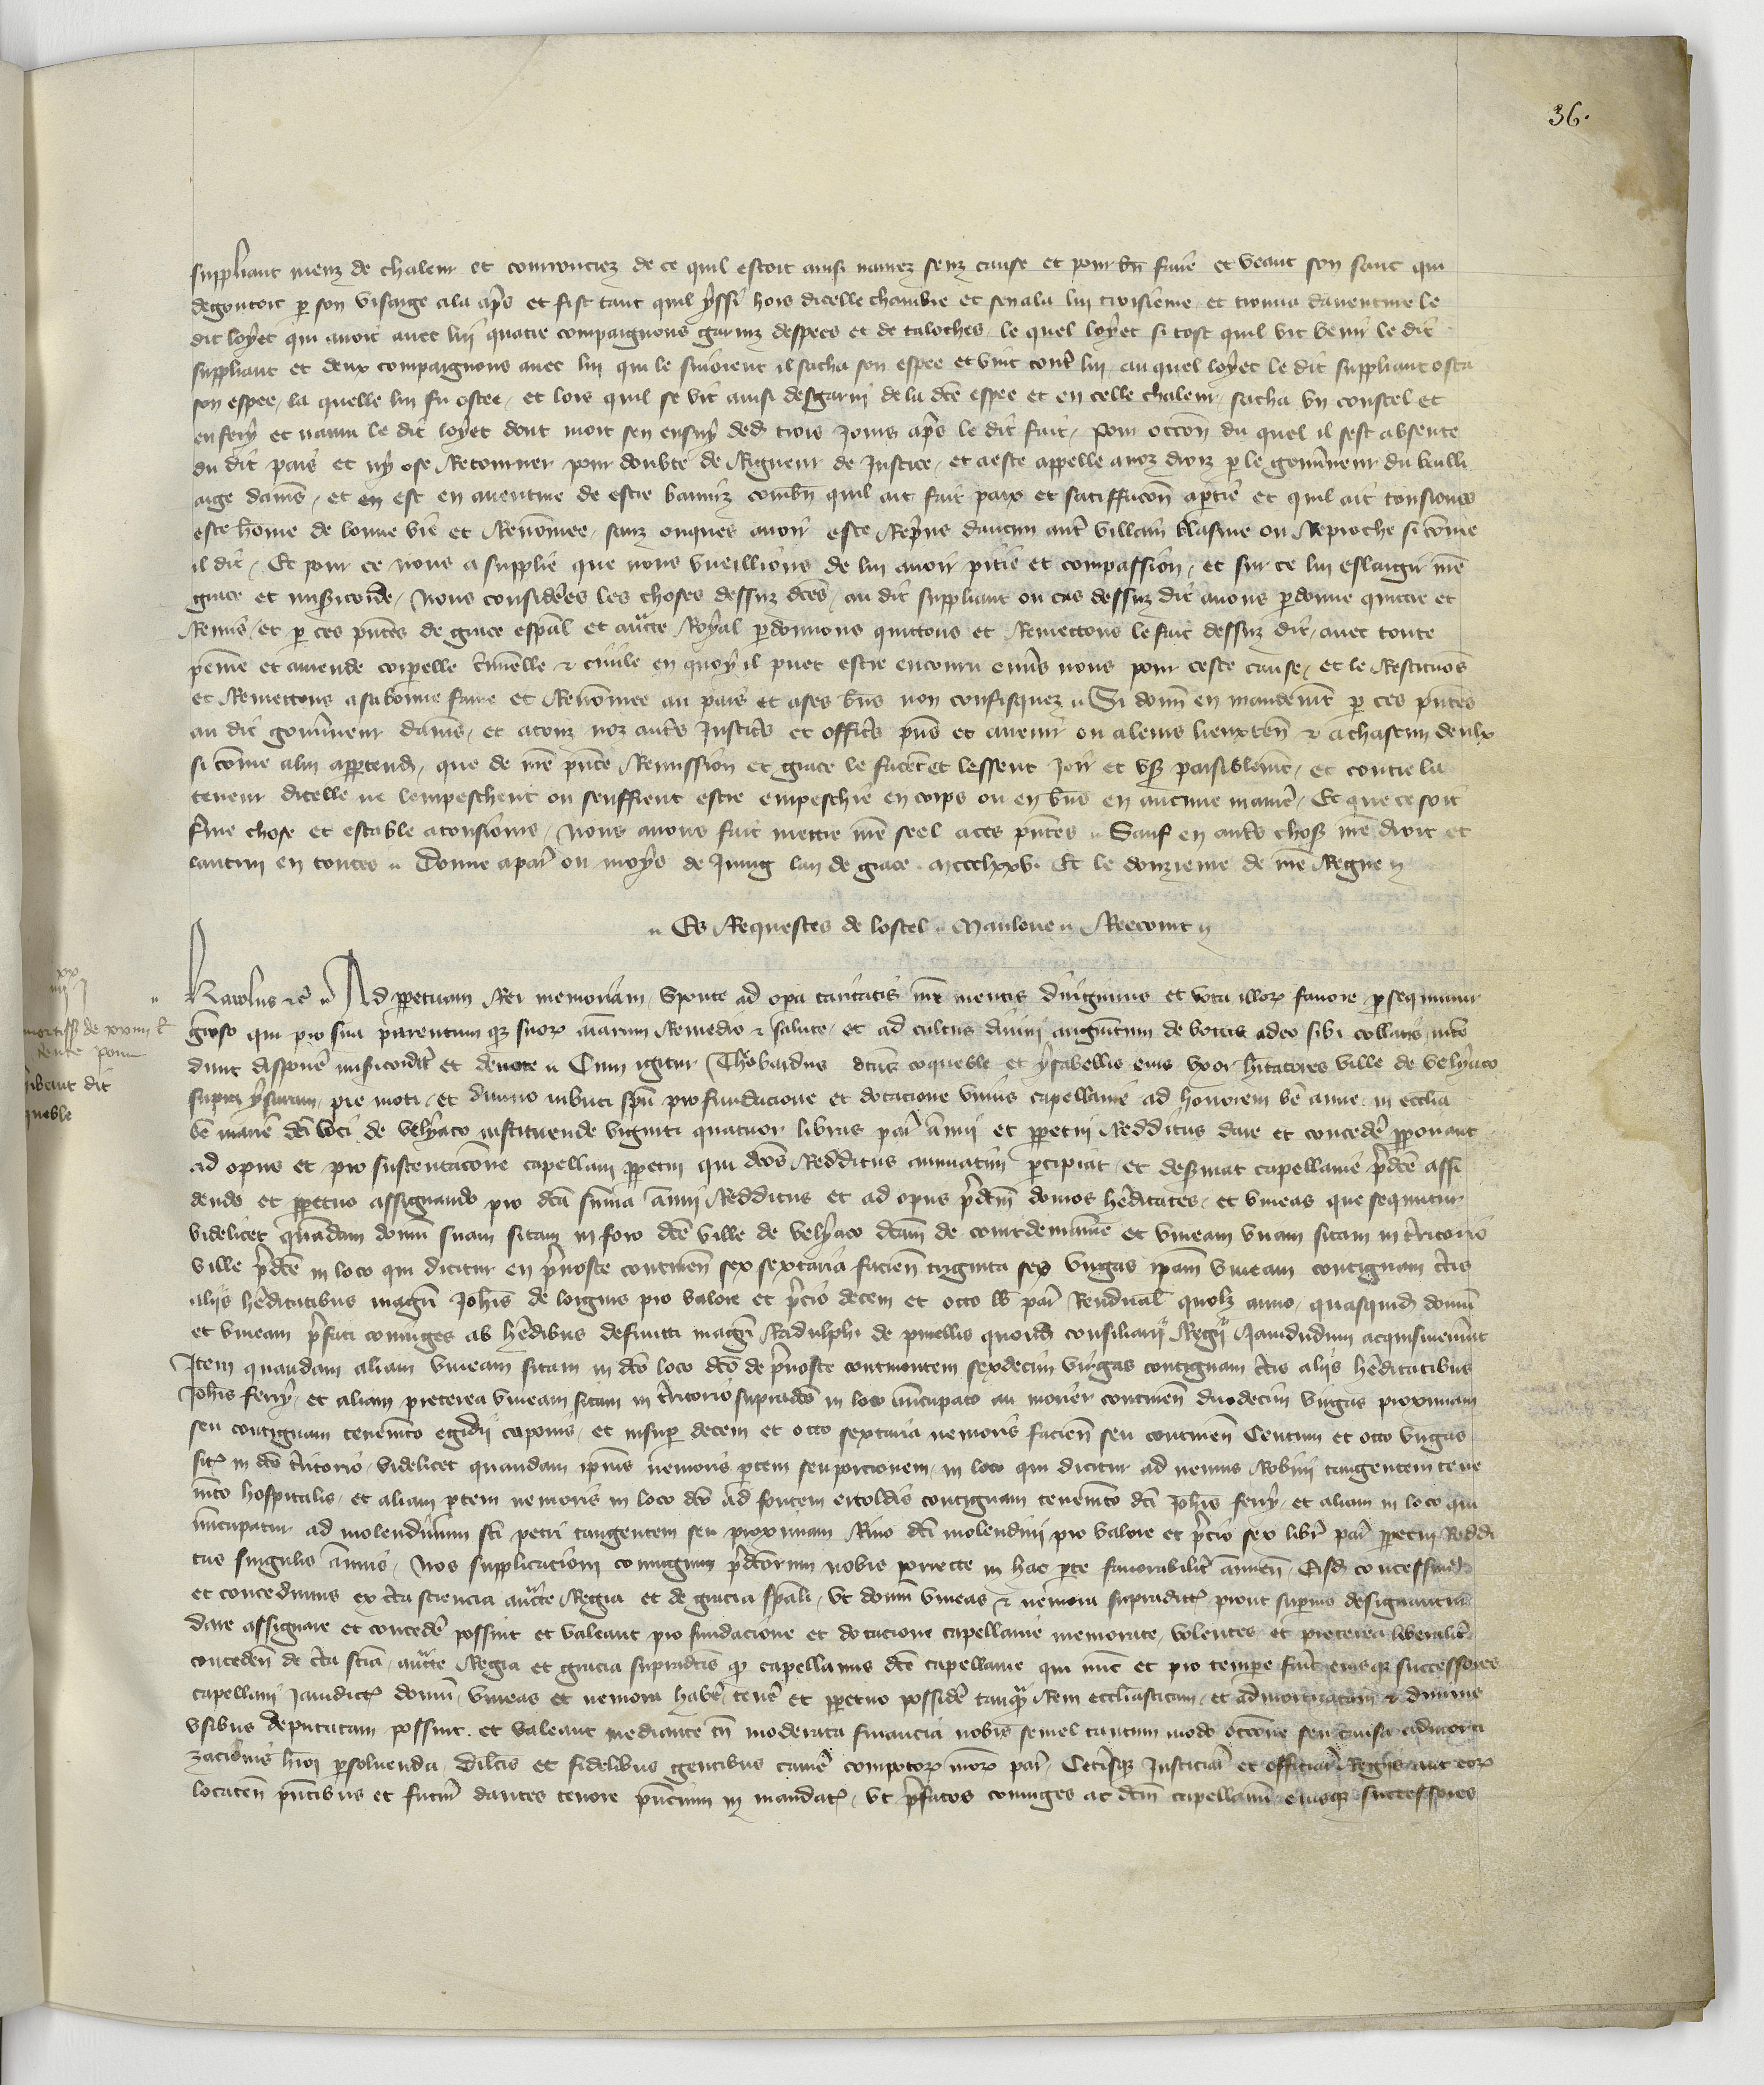 36.
suppliant meuz de chaleur et courrouciez de ce quil estoit ainsi navrez senz cause et pour bñ faire et veant son sanc qui
degoutoit p son visaige ala ap̃s et fist tant quil yssi hors dicelle chambre et senala lui troisieme et trouva daventure le
dit loyet qui avoit avec lui quatre compaignons garniz despees et de taloches le quel loyet si tost quil vit venir le dit
suppliant et deux compaignons avec lui qui le suioient il sacha son espee et vint contr̃ lui au quel loyet le dit suppliant osta
son espee, la quelle lui fu ostee, et lors quil se vit ainsi desgarni de la dc̃e espee et en celle chaleur, sacha un coustel et
en fery et navra le dit loyet dont mort sen ensuy dedꝫ trois jours ap̃s le dit fait, Pour occõn du quel il sest absente
du dit pais et ny ose Retourner pour doubte de Rigueur de Justice, et a este appelle a noz droiz p le gouv̾neur du bailli
aige damiẽs, et en est en aventure de estre banniz combñ quil ait fait paix et satiffacõn a partie et quil ait tousiours
este hõme de bonne vie et Renõmee, sanz onques avoir este Rep̃ns daucun autr̃ villain blasme ou Reproche si cõme
il dit, Et pour ce nous a supplie que nous vueillions de lui avoir pitie et compassion, et sur ce lui eslargir nr̃e
grace et mis̾icorde, Nous considerees les choses dessuz dc̃es, au dit suppliant ou cas dessuz dit avons p donne quictie et
Remis, et p ces p̃ntes de grace esp̃al et auc̃te Royal p donnons quittons et Remettons le fait dessuz dit, avec toute
peine et amende corpelle c̃minelle & civile en quoy il puet estre encouru env̾s nous pour ceste cause, et le Restituõs
et Remettons a sa bonne fame et Renõmee au pais et a ses bñs non confisquez. Si donñ en mandemt̃ p ces p̃ntes
au dit gouv̾neur damiẽs, et a touz noz autr̃s Justic̃s et offic̃s p̃ns et avenir ou a leurs lieuxtẽn & a chascun deulx
si cõme a lui apptendꝫ, que de nr̃e p̃nte Remission et grace le facet̃ et lessent joir et us̾ paisiblemt̃, et contre la
teneur dicelle ne lempeschent ou seuffrent estre empeschie en corps ou en bñs en aucune manie͂, Et que ce soit
f̾me chose et estable a tousiours, Nous avons fait mettre nr̃e seel a ces p̃ntes. Sauf en autr̃s chos̾ nr̃e droit et
lautrui en toutes. Donne a par̃ ou moys de Juing lan de grace mccclxxv. Et le douzieme de nr̃e Regne

Es Requestes de lostel Mauloue Recourt

Karolus &c̃ Ad ppetuam Rei memoriam, Sponte ad opa caritatis nr̃e mentis dirigimus et vota illoꝝ favore p sequimur
grãso qui pro sua parentum qꝫ suoꝝ aĩarum Remedio & salute, et ad cultus divini augmẽtum de bonis a deo sibi collatis inten
dunt dispone͂ mis̾icordit̾ et devote. Cum igitur Theobardus dc̃us coqueble et ysabellis eius uxor hĩtatores ville de velyaco
supra ysaram, pie moti, et divino imbuti spũ pro fundacione et dotacione unius capellanie ad honorem bẽ anne in ecclĩa
bẽ marie dc̃i loci de velyaco instituende viginti quatuor libras par̃ ãnui et ppetui Redditus dare et concede͂ pponant
ad opus et pro sustentacõne capellani ppetui qui dc̃os Redditus annuatim p cipiat, et des̾viat capellanie p̃dc̃e assi
dendo et ppetuo assignando pro dc̃a sũma ãnui Redditus et ad opus p̃dc̃m domos he͂ditates, et vineas que sequntur
videlicet quãdam domũ suam sitam in foro dc̃e ville de velyaco dc̃am de courdemaine et vineam unam sitam in t̾ritorio
ville p̃dc̃e in loco qui dicitur en p̃voste continen͂ sex sextaria facien͂ triginta sex virgas ip̃am vineam contiguam c̾tis
aliis he͂ditatibus magr̃i Joh̃is de lorgnis pro valore et p̃cio decem et octo lb par̃ Rendual̃ quolꝫ anno, quasquidꝫ domũ
et vineam p̃fati coniuges ab he͂dibus defuncti magr̃i Radulphi de pruellis quondꝫ consiliarii Regii Jamdudum acquisiverũt
Item quandam aliam vineam sitam in dc̃o loco dc̃o de p̃voste continentem sexdecim virgas contiguam c̾tis aliis he͂ditatibus
Joh̃is ferry, et aliam preterea vineam sitam in t̾ritorio supradc̃o in loco nũcupato au morier continen͂ duodecim virgas proximam
seu contiguam tenemẽto egidii caponis, et insup decem et octo sextaria nemoris facien͂ seu continen͂ Centum et octo virgas
sit̾ in dc̃o t̾ritorio, videlicet quandam ip̃ius nemoris p̱tem seu porcionem, in loco qui dicitur ad nemus Robini tangentem tene
mẽto hospitalis, et aliam p̱tem nemoris in loco dc̃o ad fontem ertoldis contiguam tenemẽto dc̃i Joh̃is ferry, et aliam in loco qui
nũcupatur ad molendinum sc̃i petri tangentem seu proximam Rivo dc̃i molendini pro valore et p̃cio sex libr̃ par̃ ppetui Reddi
tus singulis ãnnis, Nos supplicacioni coniugum p̃dc̃orum nobis porrecte in hac p̱te favorabilit̾ ãnuen͂, Eisdꝫ concessimus
et concedimus ex c̾ta sciencia auc̃te Regia et de gracia sp̃ali, ut domũ vineas & nemora supradict̾ prout sup̱ius designantur
dare assignare et concede͂ possint et valeant pro fundacione et dotacione capellanie memorate, volentes et preterea liberalit̾
conceden͂ de c̾ta scĩa, auc̃te Regia et gracia supradc̃is qꝫ capellanus dc̃e capellanie qui nũc et pro tempe fue͂t eiusqꝫ successores
capellani Jamdict̾ domũ, vineas et nemora habe͂, tene͂ et ppetuo posside͂ tanqꝫ Rem ecclĩasticam, et admortizatam & divinis
usibus deputatam possint et valeant mediante tñ moderata financia nobis semel tantum modo occc̃one seu causa admorti
zacionis hĩoi p solvenda, Dilc̃is et fidelibus gentibus came͂ compotoꝝ nr̃oꝝ par̃, Ceter̃isqꝫ Justiciar̃ et officiar̃ Regiis aut eoꝝ
locaten͂ p̃ntibus et futur̃ dantes tenore p̃ncium in mandat̾, ut p̃fatos coniuges ac dc̃m capellanũ eiusqꝫ successores